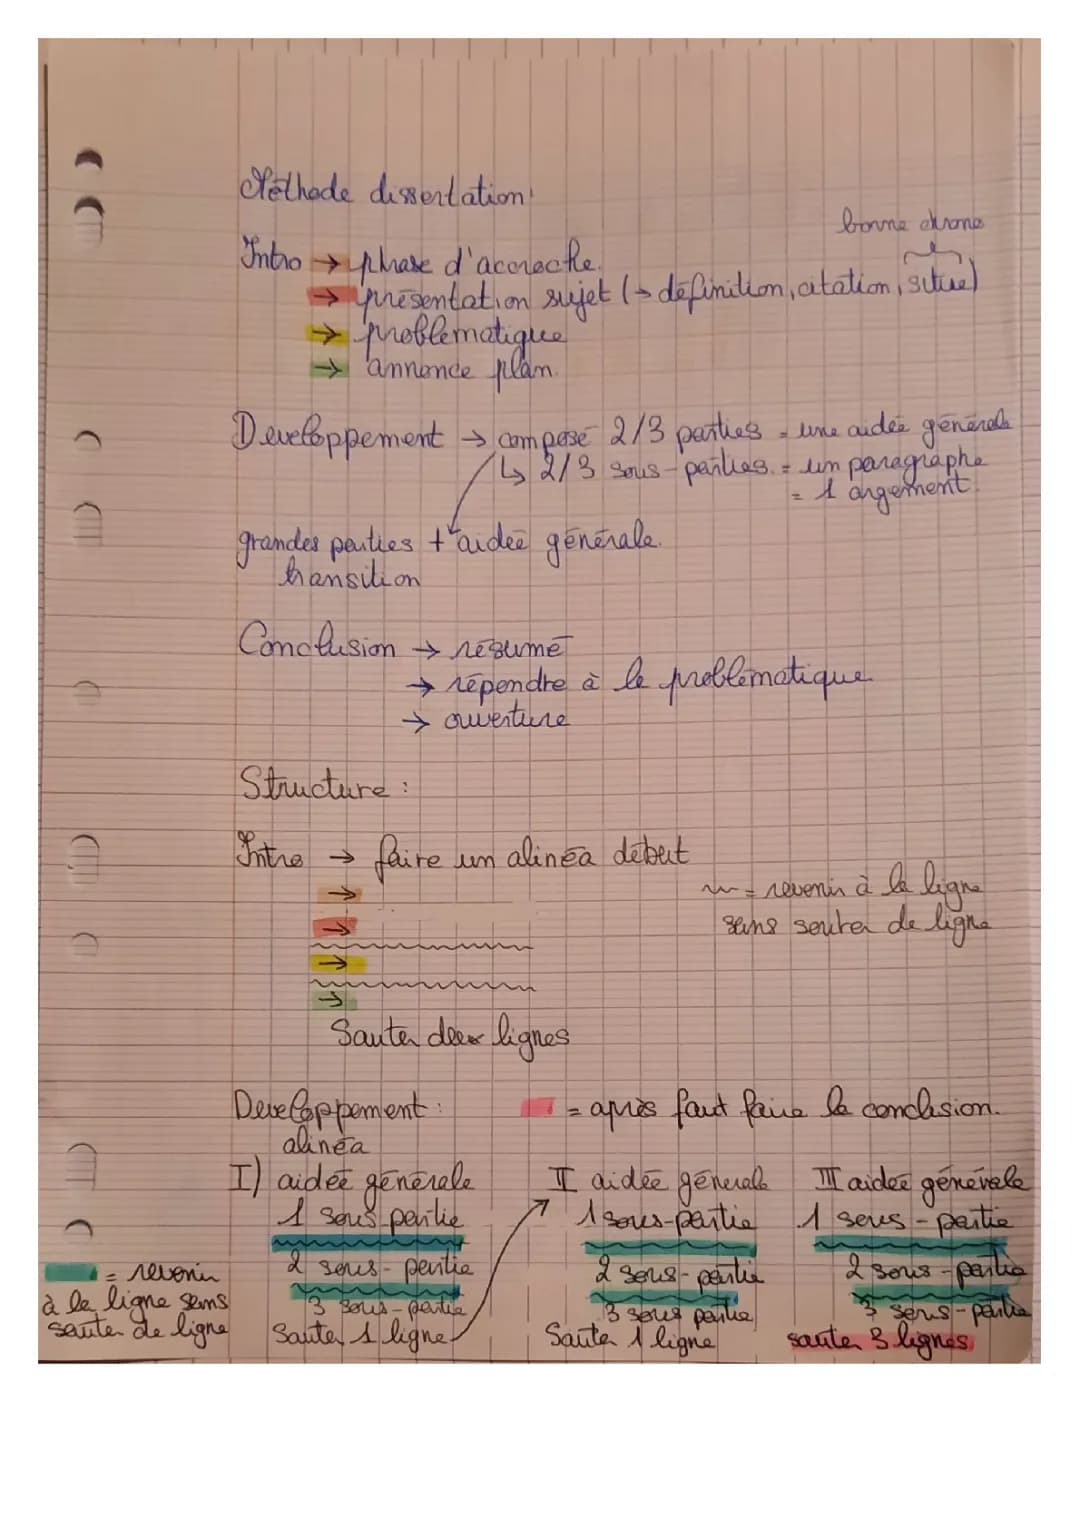 Méthode dissertation:
borne chrono
Intro → phrase d'accroche.
→ présentation sujet (→ définition, citation, situe)
→ problématique
→ annonce plan.
Developpement → composé 2/3 parties = une aidée générale
↳ 2/3 sous-parties. = un paragraphe
= 1 argement.
grandes parties + aidée générale.
transition
Conclusion → résumé
→ répondre à la problématique
→ ouverture
Structure :
Intro → faire un alinéa début
→
~ = revenir à la ligne
sans sauter de ligne
→
→
→
Sauter deux lignes
Developpement :
= après faut faire la conclusion.
alinéa
I) aidée générale
1 sous partie
2 sous-partie
3 sous-partie
Sauter 1 ligne
II aidée génerale
1 sous-partie
2 sous-partie
3 sous partie
Sauter 1 ligne
III aidée générale
1 sous-partie
2 sous-partie
3 sous-partie
sauter 3 lignes.
= revenir
à la ligne sans
sauter de ligne